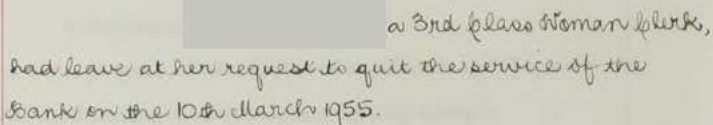 a 3rd Class Woman Clerk,
had leave at her request to quit the service of the
Bank on the 10th March 1955.